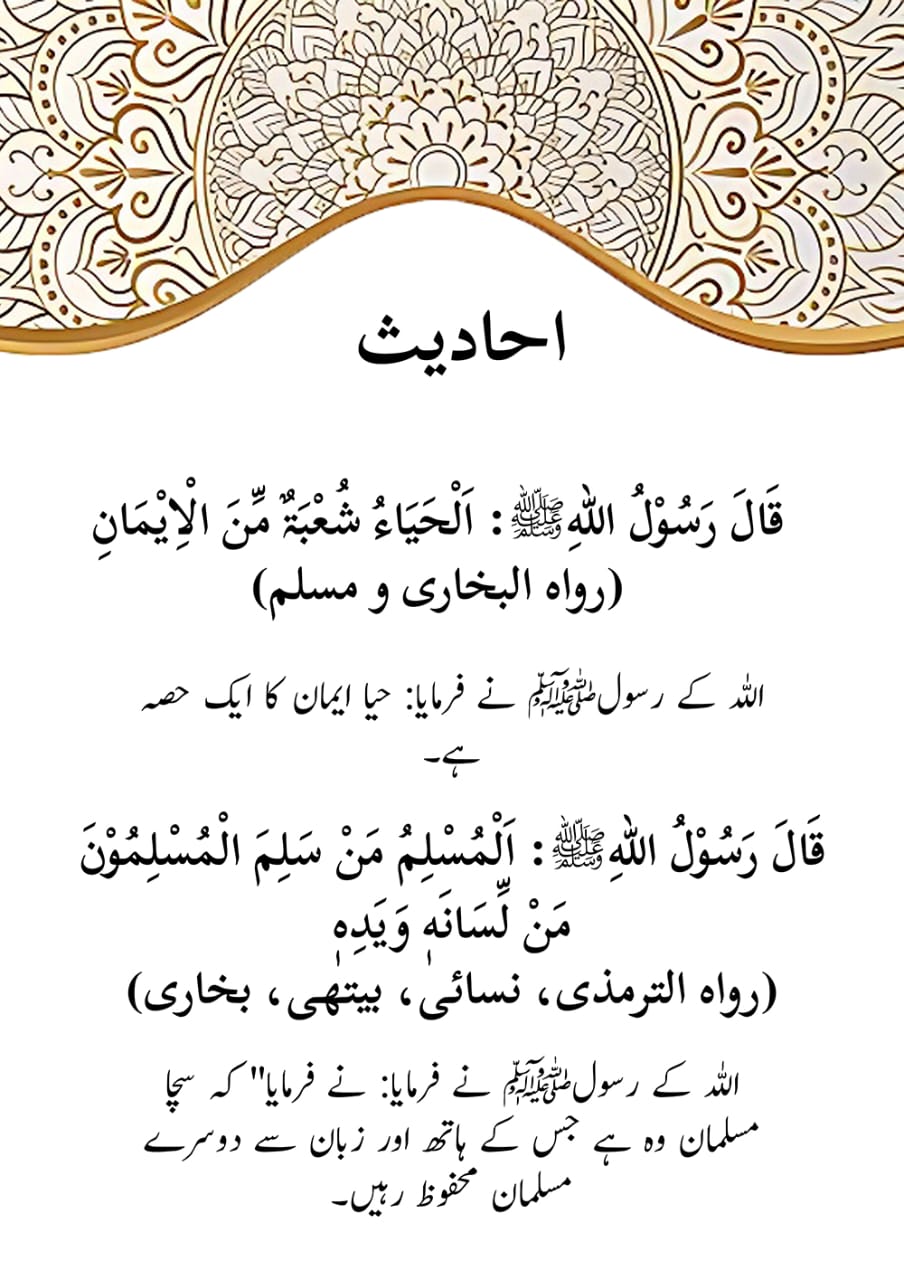 احادیث
قَالَ رَسُوْلُ اللهِﷺ: اَلْحَيَاءُ شُعْبَةٌ مِّنَ الْاِيْمَانِ
(رواه البخاری و مسلم)
اللہ کے رسولﷺ نے فرمایا: حیا ایمان کا ایک حصہ
ہے۔
قَالَ رَسُوْلُ اللهِﷺ: اَلْمُسْلِمُ مَنْ سَلِمَ الْمُسْلِمُوْنَ
مَنْ لِّسَانَهٖ وَيَدِهٖ
(رواه الترمذی، نسائی، بیتھی، بخاری)
اللہ کے رسولﷺ نے فرمایا: نے فرمایا" کہ سچا
مسلمان وہ ہے جس کے ہاتھ اور زبان سے دوسرے
مسلمان محفوظ رہیں۔